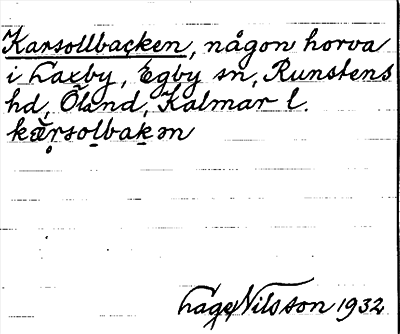 Karsollbacken, någon horva
i Laxby, Egby sn, Runstens
hd, Öland, Kalmar l.
kæ̆rsolbakən
Lage Nilsson 1932